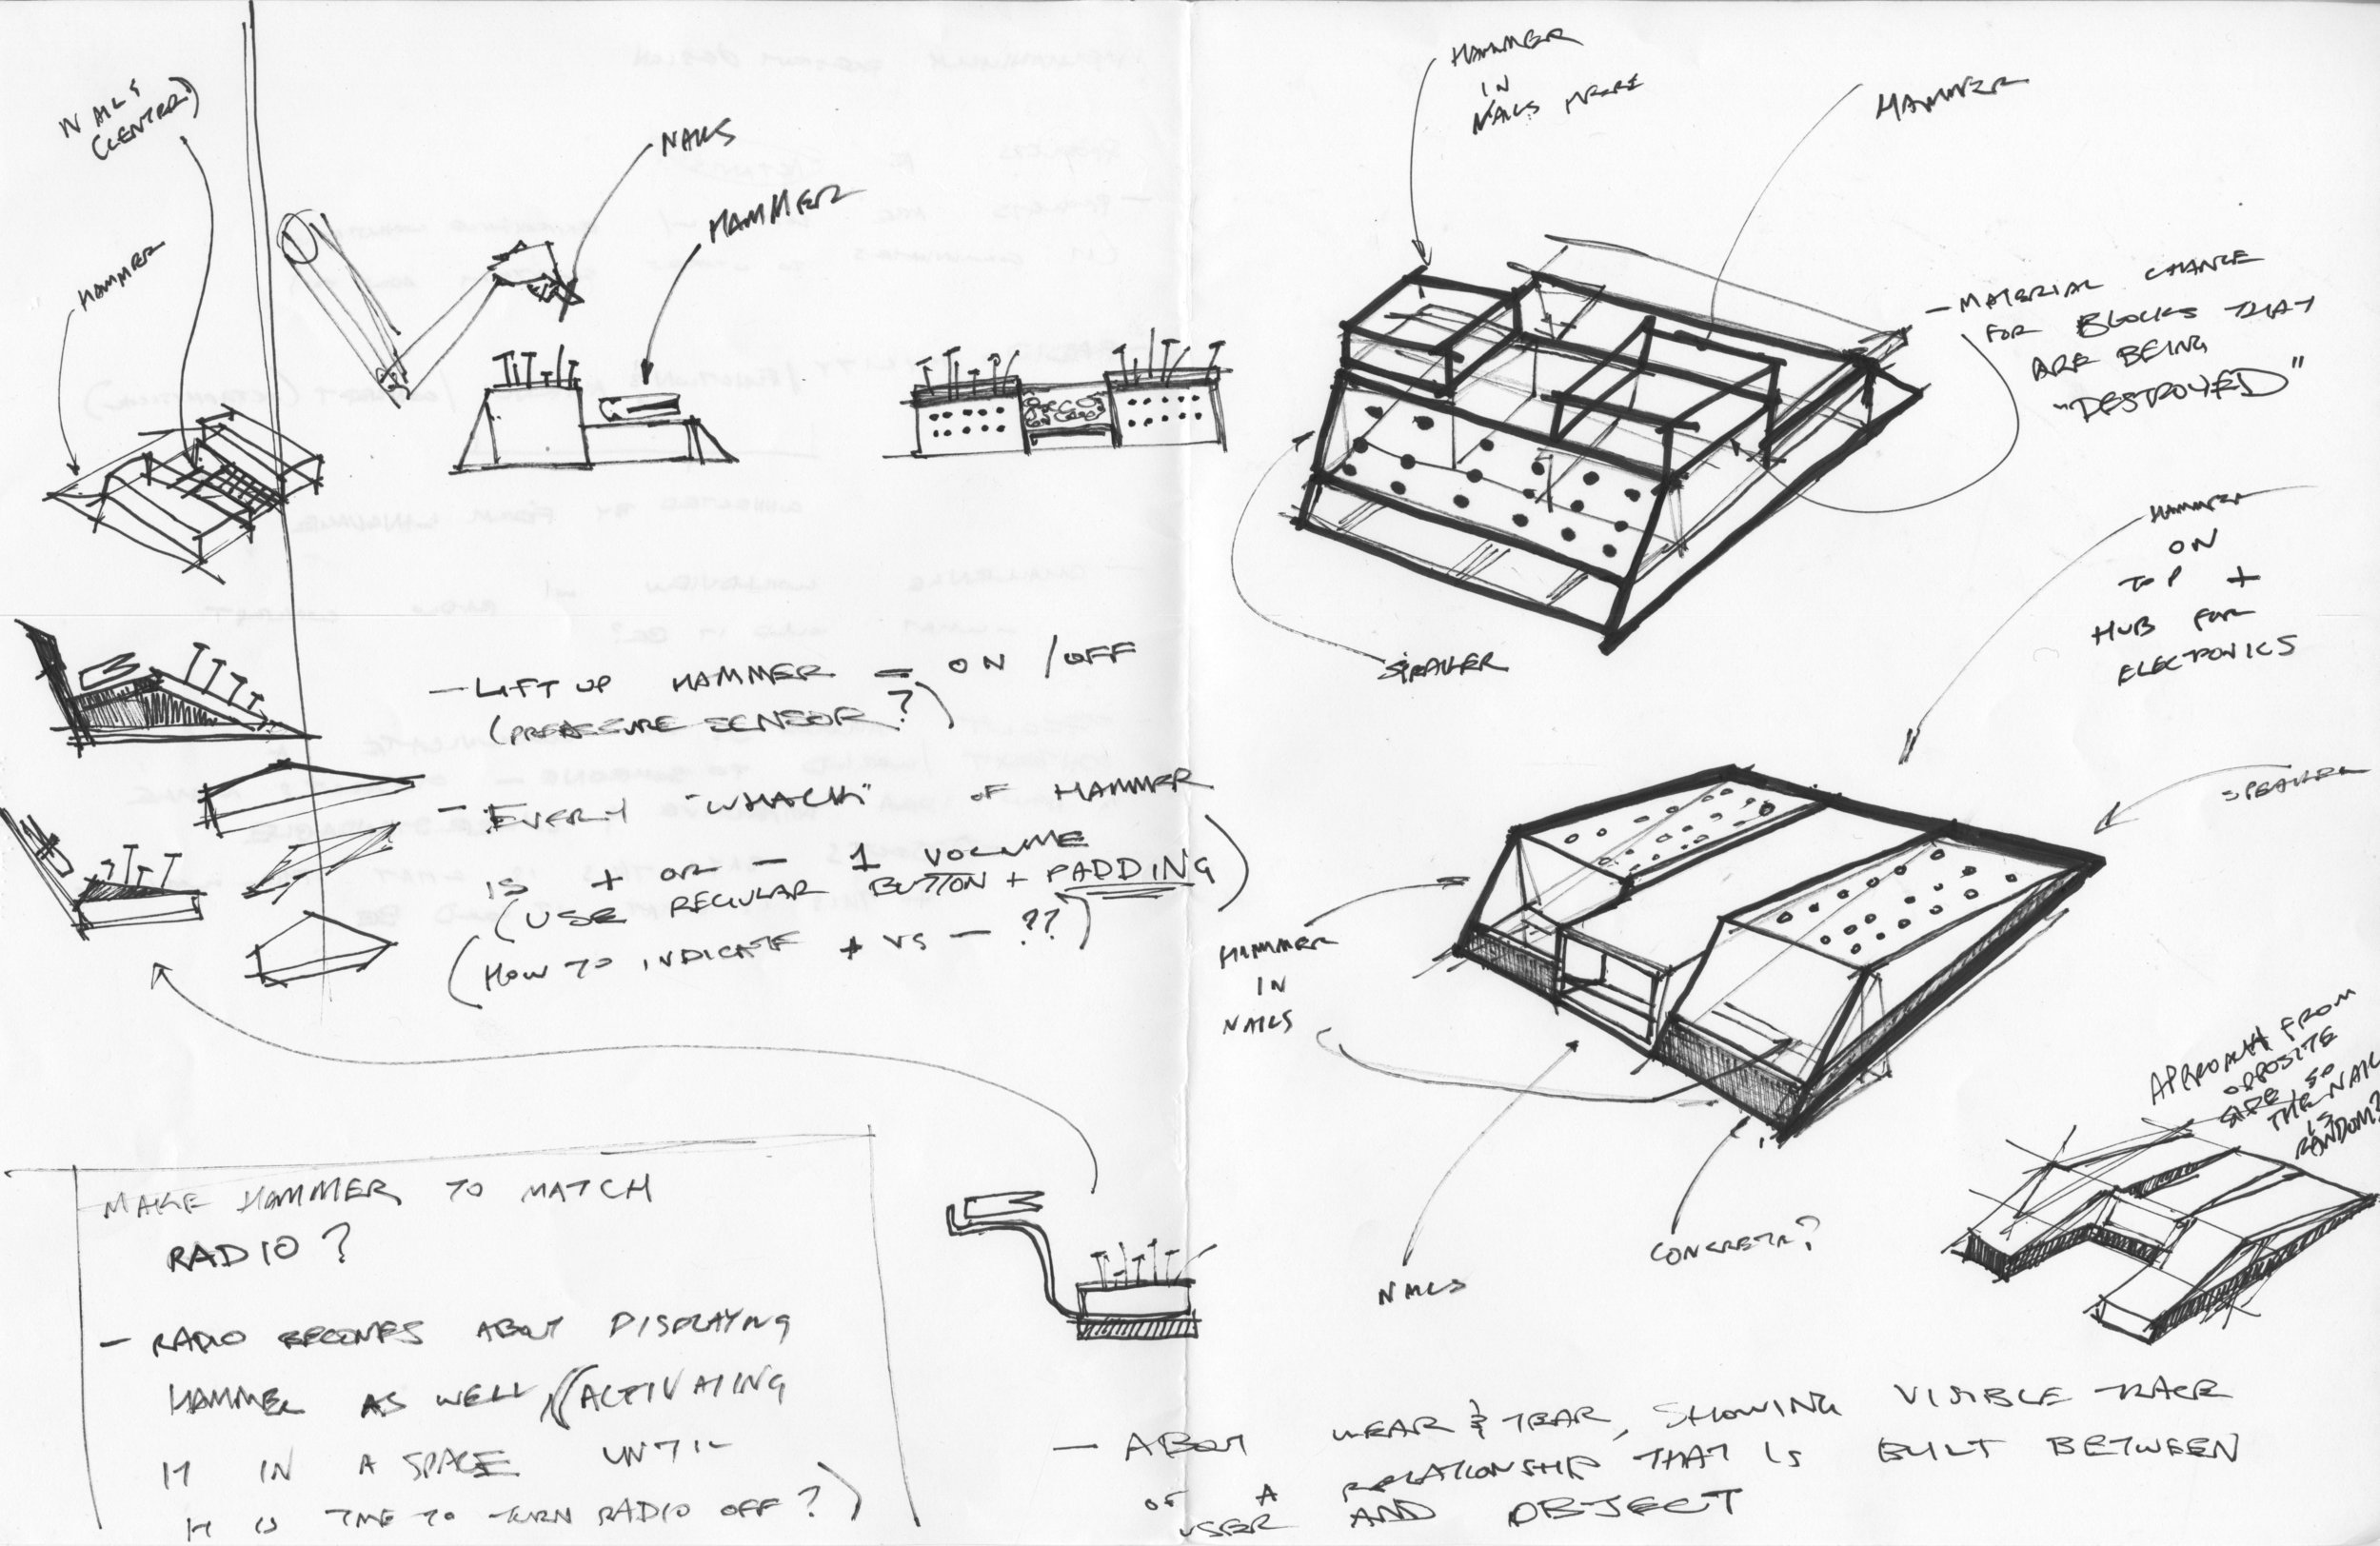 NAILS
(CENTER)
HAMMER
NAILS
HAMMER
- LIFT UP HAMMER = ON / OFF
(PREASSURE SENSOR?)
- EVERY "WHACK" OF HAMMER
IS + OR - 1 VOLUME
(USE REGULAR BUTTON + PADDING)
(HOW TO INDICATE + VS - ??)
MAKE HAMMER TO MATCH
RADIO?
- RADIO BECOMES ABOUT DISPLAYING
HAMMER AS WELL (ACTIVATING
IT IN A SPACE UNTIL
IT IS TIME TO TURN RADIO OFF?)
HAMMER
IN
NAILS HERE
HAMMER
- MATERIAL CHANGE
FOR BLOCKS THAT
ARE BEING
"DESTROYED"
SPEAKER
HAMMER
ON
TOP +
HUB FOR
ELECTRONICS
SPEAKER
HAMMER
IN
NAILS
NAILS
CONCRETE?
APPROACH FROM
OPPOSITE
SIDE SO
THE NAIL
IS
RANDOM?
- ABOUT WEAR & TEAR, SHOWING VISIBLE TRACE
OF A RELATIONSHIP THAT IS BUILT BETWEEN
USER AND OBJECT